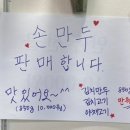 손만두
판매합니다
맛있어요~^^
(850g 10,000원)
김치만두
김치고기
야채고기